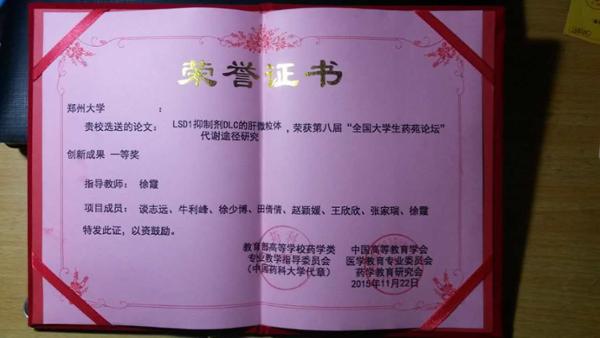 荣誉证书
郑州大学 :
贵校选送的论文: LSD1抑制剂DLC的肝微粒体代谢途径研究 , 荣获第八届“全国大学生药苑论坛”
创新成果 一等奖
指导教师: 徐霞
项目成员: 谈志远、牛利峰、徐少博、田倩倩、赵颖媛、王欣欣、张家瑞、徐霞
特发此证, 以资鼓励。
教育部高等学校药学类
专业教学指导委员会
(中国药科大学代章)
中国高等教育学会
医学教育专业委员会
药学教育研究会
2015年11月22日